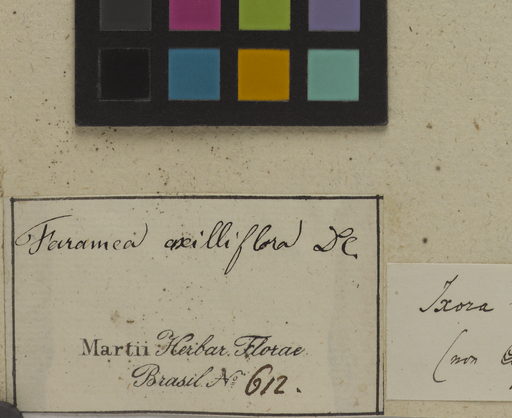 Faramea axilliflora DC.
Martii Herbar. Florae
Brasil. No 612.
Ixora
(non